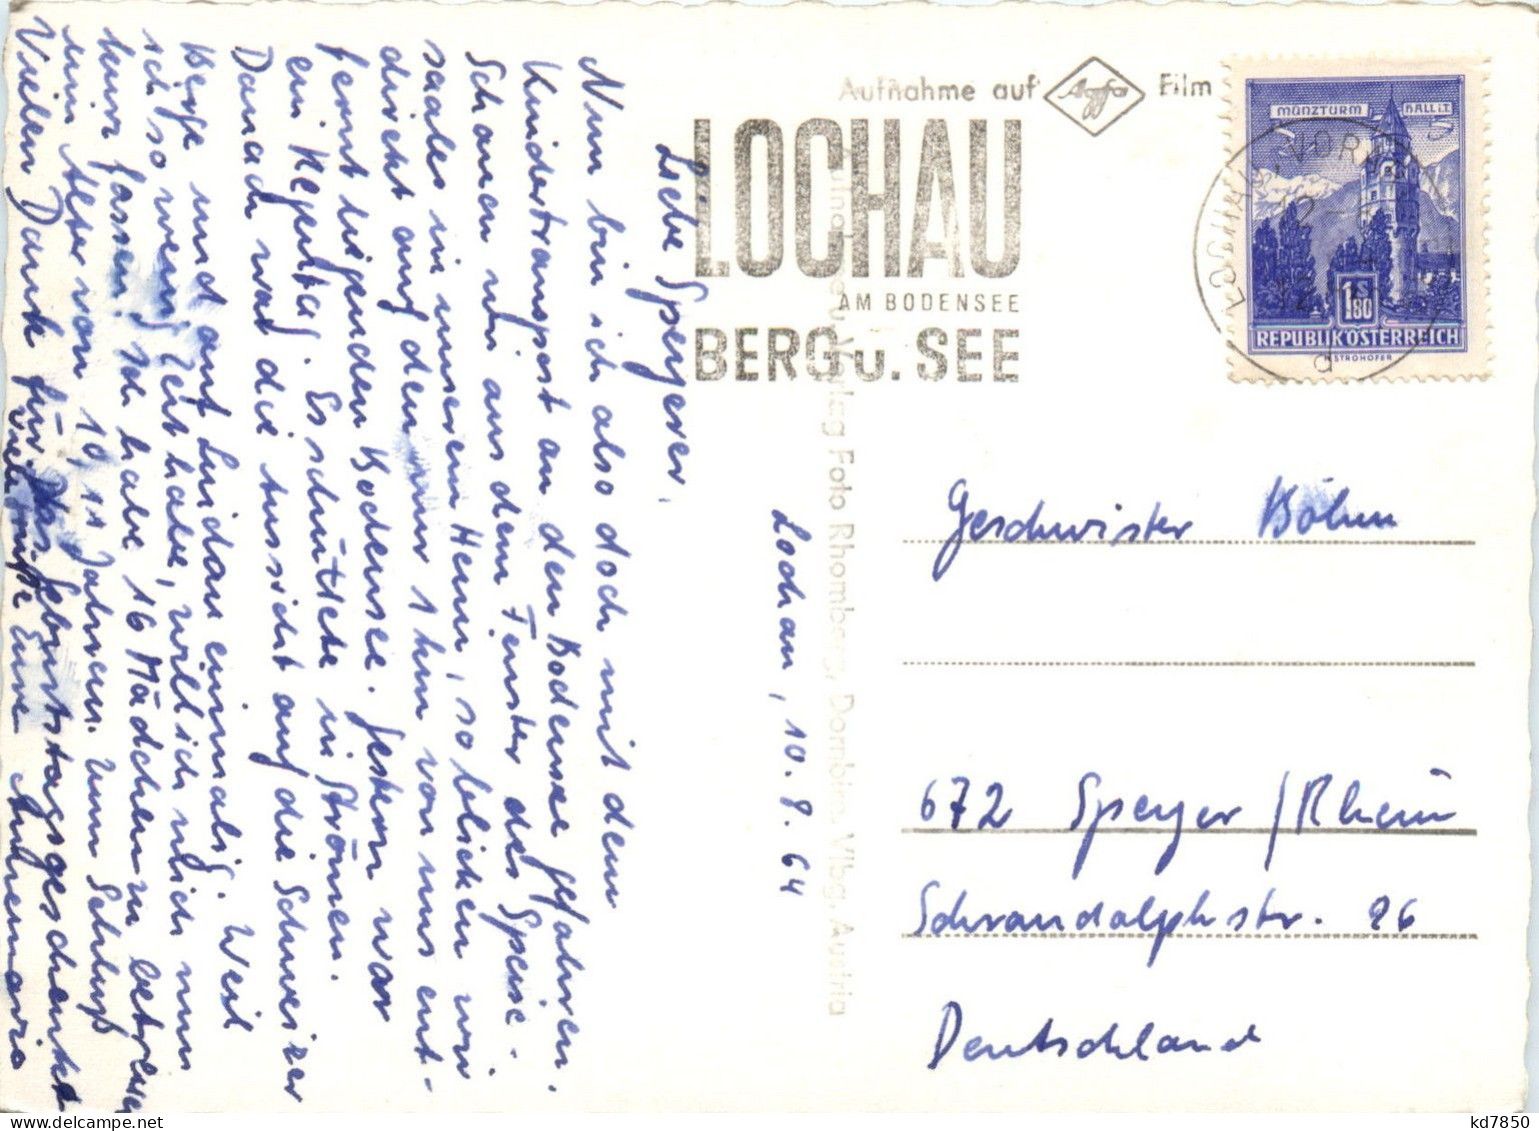 Lochau, 10.8.64
Liebe Speyerer,
Nun bin ich also doch mit dem
Kindertransport an den Bodensee gefahren.
Schauen wir aus dem Fenster des Speise-
saales in unserem Heim, so blicken wir
direkt auf den nur 1 km von uns ent-
fernt liegenden Bodensee. Gestern war
ein Regentag. Es schüttete in Strömen.
Danach war die Aussicht auf die Schweizer
Berge und auf Lindau einmalig. Weil
ich so wenig Zeit habe, will ich mich nun
kurz fassen. Ich habe 16 Mädchen zu betreuen
im Alter von 10, 11 Jahren. Zum Schluß
Vielen Dank für das Geburtstagsgeschenk
Viele Grüße Eure Annemarie
Aufnahme auf Agfa Film
LOCHAU
AM BODENSEE
BERG u. SEE
MÜNZTURM HALL i.T.
1 S 80
REPUBLIK ÖSTERREICH
H. STROHOFER
Verlag Foto Rhomberg, Dornbirn, Vlbg, Austria
Geschwister Böhm
672 Speyer / Rhein
Schraudolphstr. 26
Deutschland
kd7850